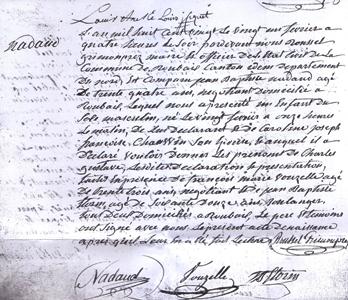 Nadaud
L'an mil huit cent vingt le vingt un fevrier a
quatre heures du Soir pardevant nous
maire et officier de l'Etat Civil de la
Commune de Roubaix Canton idem departement
du nord, est Comparu jean Baptiste nadaud agé
de trente quatre ans, negotiant domicilié a
Roubaix, Lequel nous a presenté un Enfant du
Sexe masculin, né Le vingt fevrier a onze heures
Le matin, de Lui Declarant et de Caroline joseph
françoise, Son Epouse, Et auquel il a
Declaré Vouloir Donner Les prenoms de Charles
gustave, Lesdites Declarations Et presentation,
faites En presence de francois marie Vouzelle agé
de trente trois ans, negotiant Et de jean Baptiste
florin, agé de Soixante Douze ans, Boulanger,
tous Deux Domiciliés a Roubaix. Le pere Et temoins
ont Signé avec nous Le present acte De naissance
après qu'il Leur En a été fait Lecture
Nadaud Vouzelle florin